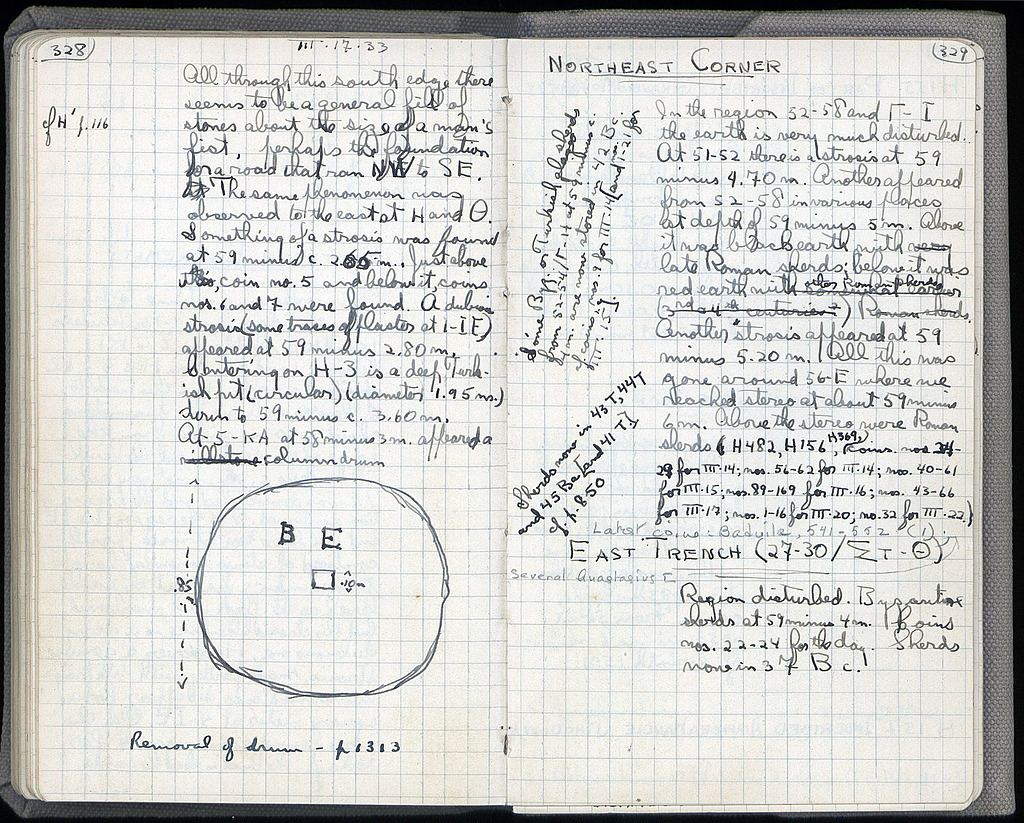 328
III · 17 · 33
All through this south edge there
seems to be a general fill of
stones about the size of a man's
fist, perhaps the foundation
for a road that ran NW to SE.
The same phenomenon was
observed to the east at H and Θ.
Something of a strosis was found
at 59 minus c. 2.65 m. Just above
this, coin no. 5 and below it, coins
nos. 6 and 7 were found. A dubious
strosis (some traces of plaster at 1-IE)
appeared at 59 minus 2.80 m.
Centering on H-3 is a deep Turk-
ish pit (circular) (diameter 1.95 m.)
down to 59 minus c. 3.60 m.
At 5-KA at 58 minus 3 m. appeared a
millstone column drum
cf H' p. 116
B E
.10m
.85
Removal of drum - p 1313
329
NORTHEAST CORNER
In the region 52-58 and Γ-I
the earth is very much disturbed.
At 51-52 there is a strosis at 59
minus 4.70 m. Another appeared
from 52-58 in various places
at depth of 59 minus 5 m. Above
it was black earth with very
late Roman sherds; below it was
red earth with other Roman sherds
(3rd - 4th centuries) Roman sherds.
Another strosis appeared at 59
minus 5.20 m. All this was
gone around 56-E where we
reached stereo at about 59 minus
6 m. Above the stereo were Roman
sherds (H482, H156, H369, Coins nos.
29 for III·14; nos. 56-62 for III·14; nos. 40-61
for III·15; nos. 89-169 for III·16; nos. 43-66
for III·17; nos. 1-16 for III·20; no. 32 for III·22)
Some Byz or Turkish glazed sherds
from 52-54/Γ-14 at 59 minus c.
4 m. are now stored in 42 Bc.
cf coins nos. 9 for III·14 [and 1-21 for
III·15].
Sherds now in 43 T, 44 T
and 45 Ba [and 41 T]
cf. p. 850
Later coins: Baduila, 541-552 (1)
EAST TRENCH (27-30/ΣT-Θ)
Several Anastasius I
Region disturbed. Byzantine
sherds at 59 minus 4 m. Coins
nos. 22-24 for the day. Sherds
now in 37 B c!